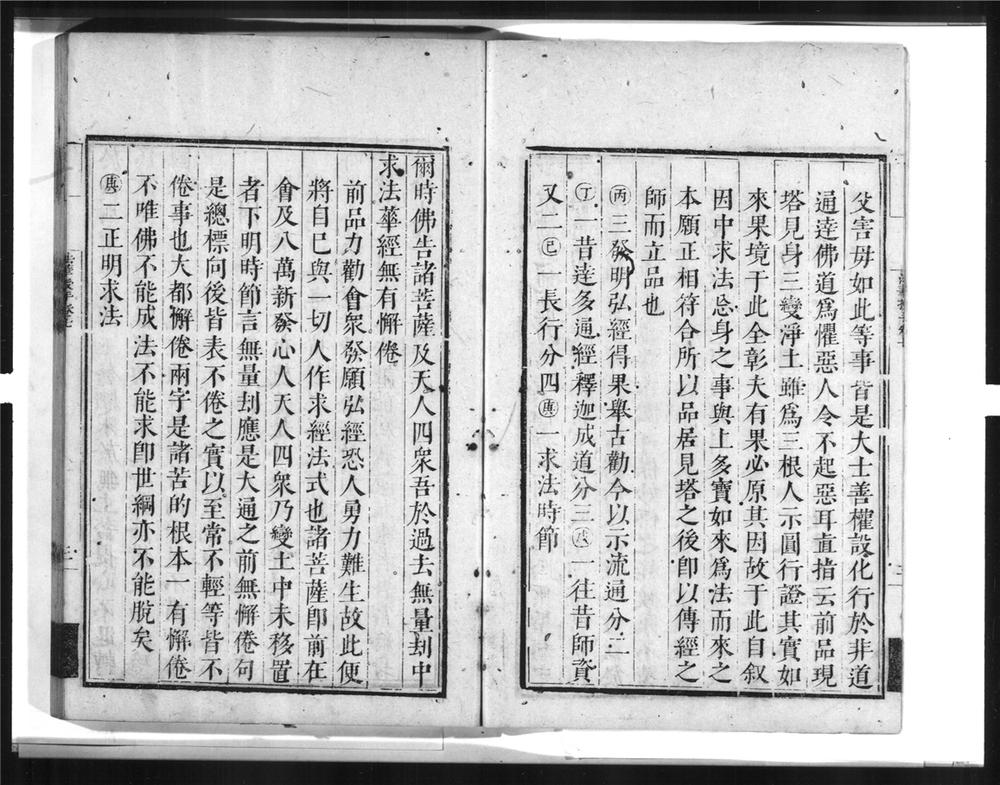 父害母如此等事皆是大士善權設化行於非道
通達佛道爲懼惡人令不起惡耳直指云前品現
塔見身三變淨土雖爲三根人示圓行證其實如
來果境于此全彰夫有果必原其因故于此自叙
因中求法忘身之事與上多寶如來爲法而來之
本願正相符合所以品居見塔之後卽以傳經之
師而立品也
㊄三發明弘經得果舉古勸今以示流通分二
丁一昔達多通經釋迦成道分三戊一往昔師資
又二己一長行分四庚一求法時節
爾時佛告諸菩薩及天人四衆吾於過去無量刦中
求法華經無有懈倦
前品力勸會衆發願弘經恐人勇力難生故此便
將自己與一切人作求經法式也諸菩薩卽前在
會及八萬新發心人天人四衆乃變土中未移置
者下明時節言無量刦應是大通之前無懈倦句
是總標向後皆表不倦之實以至常不輕等皆不
倦事也大都懈倦兩字是諸苦的根本一有懈倦
不唯佛不能成法不能求卽世綱亦不能脫矣
庚二正明求法